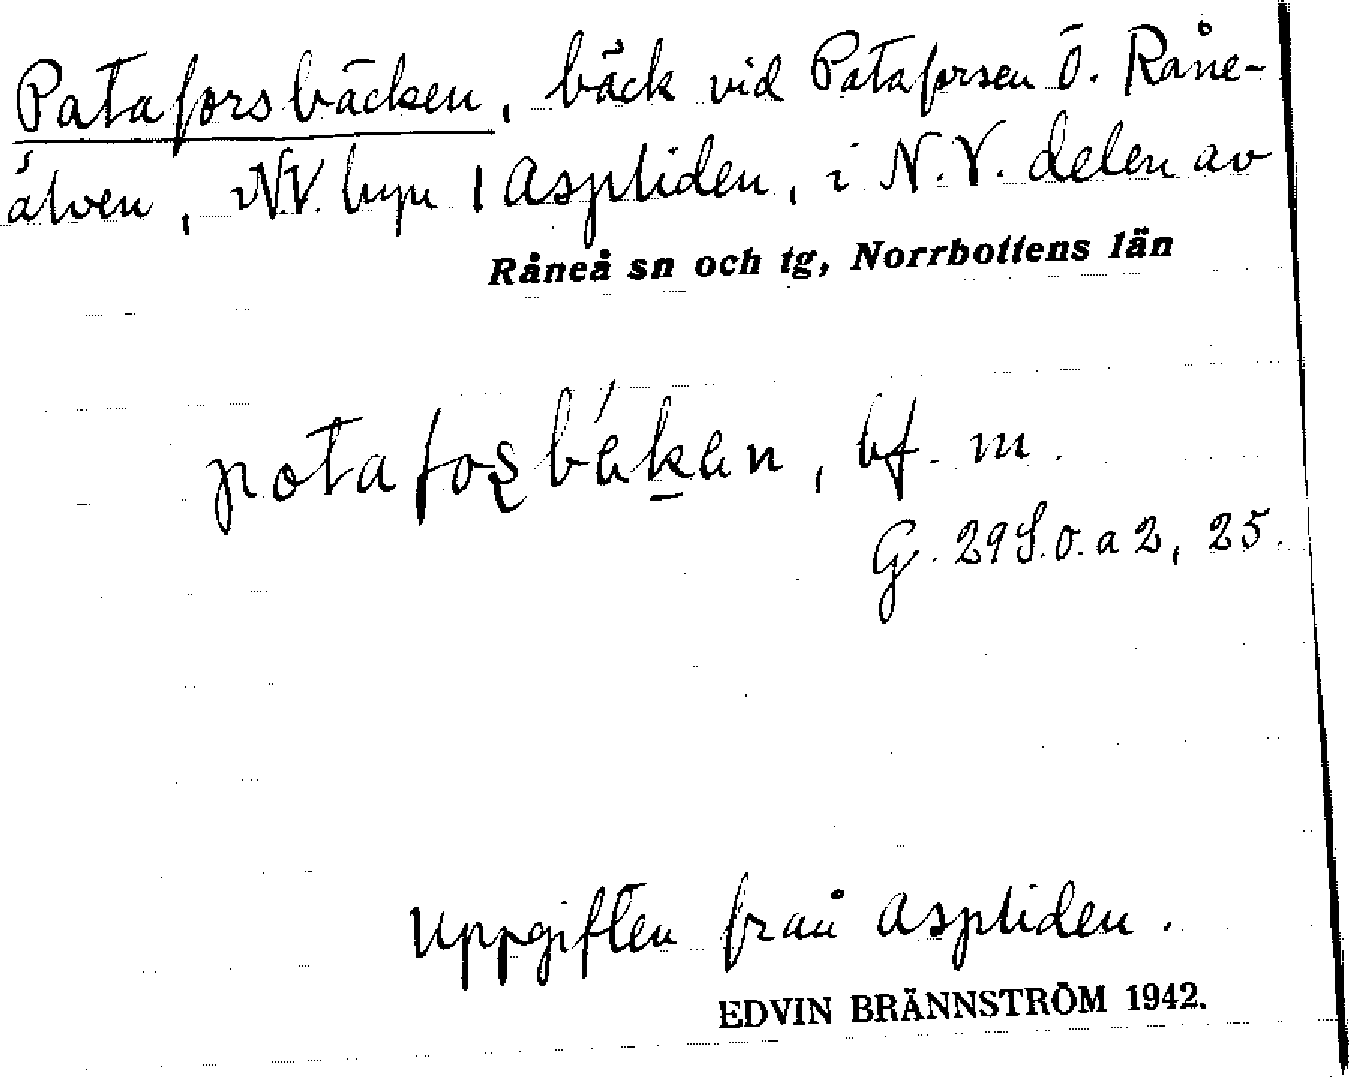 Pataforsbäcken, bäck vid Pataforsen Ö. Råne-
älven, N.V. byn Aspliden, i N.V. delen av
Råneå sn och tg, Norrbottens län
bf. m.
G. 29 S.o.a 2, 25.
Uppgiften från Aspliden.
EDVIN BRÄNNSTRÖM 1942.